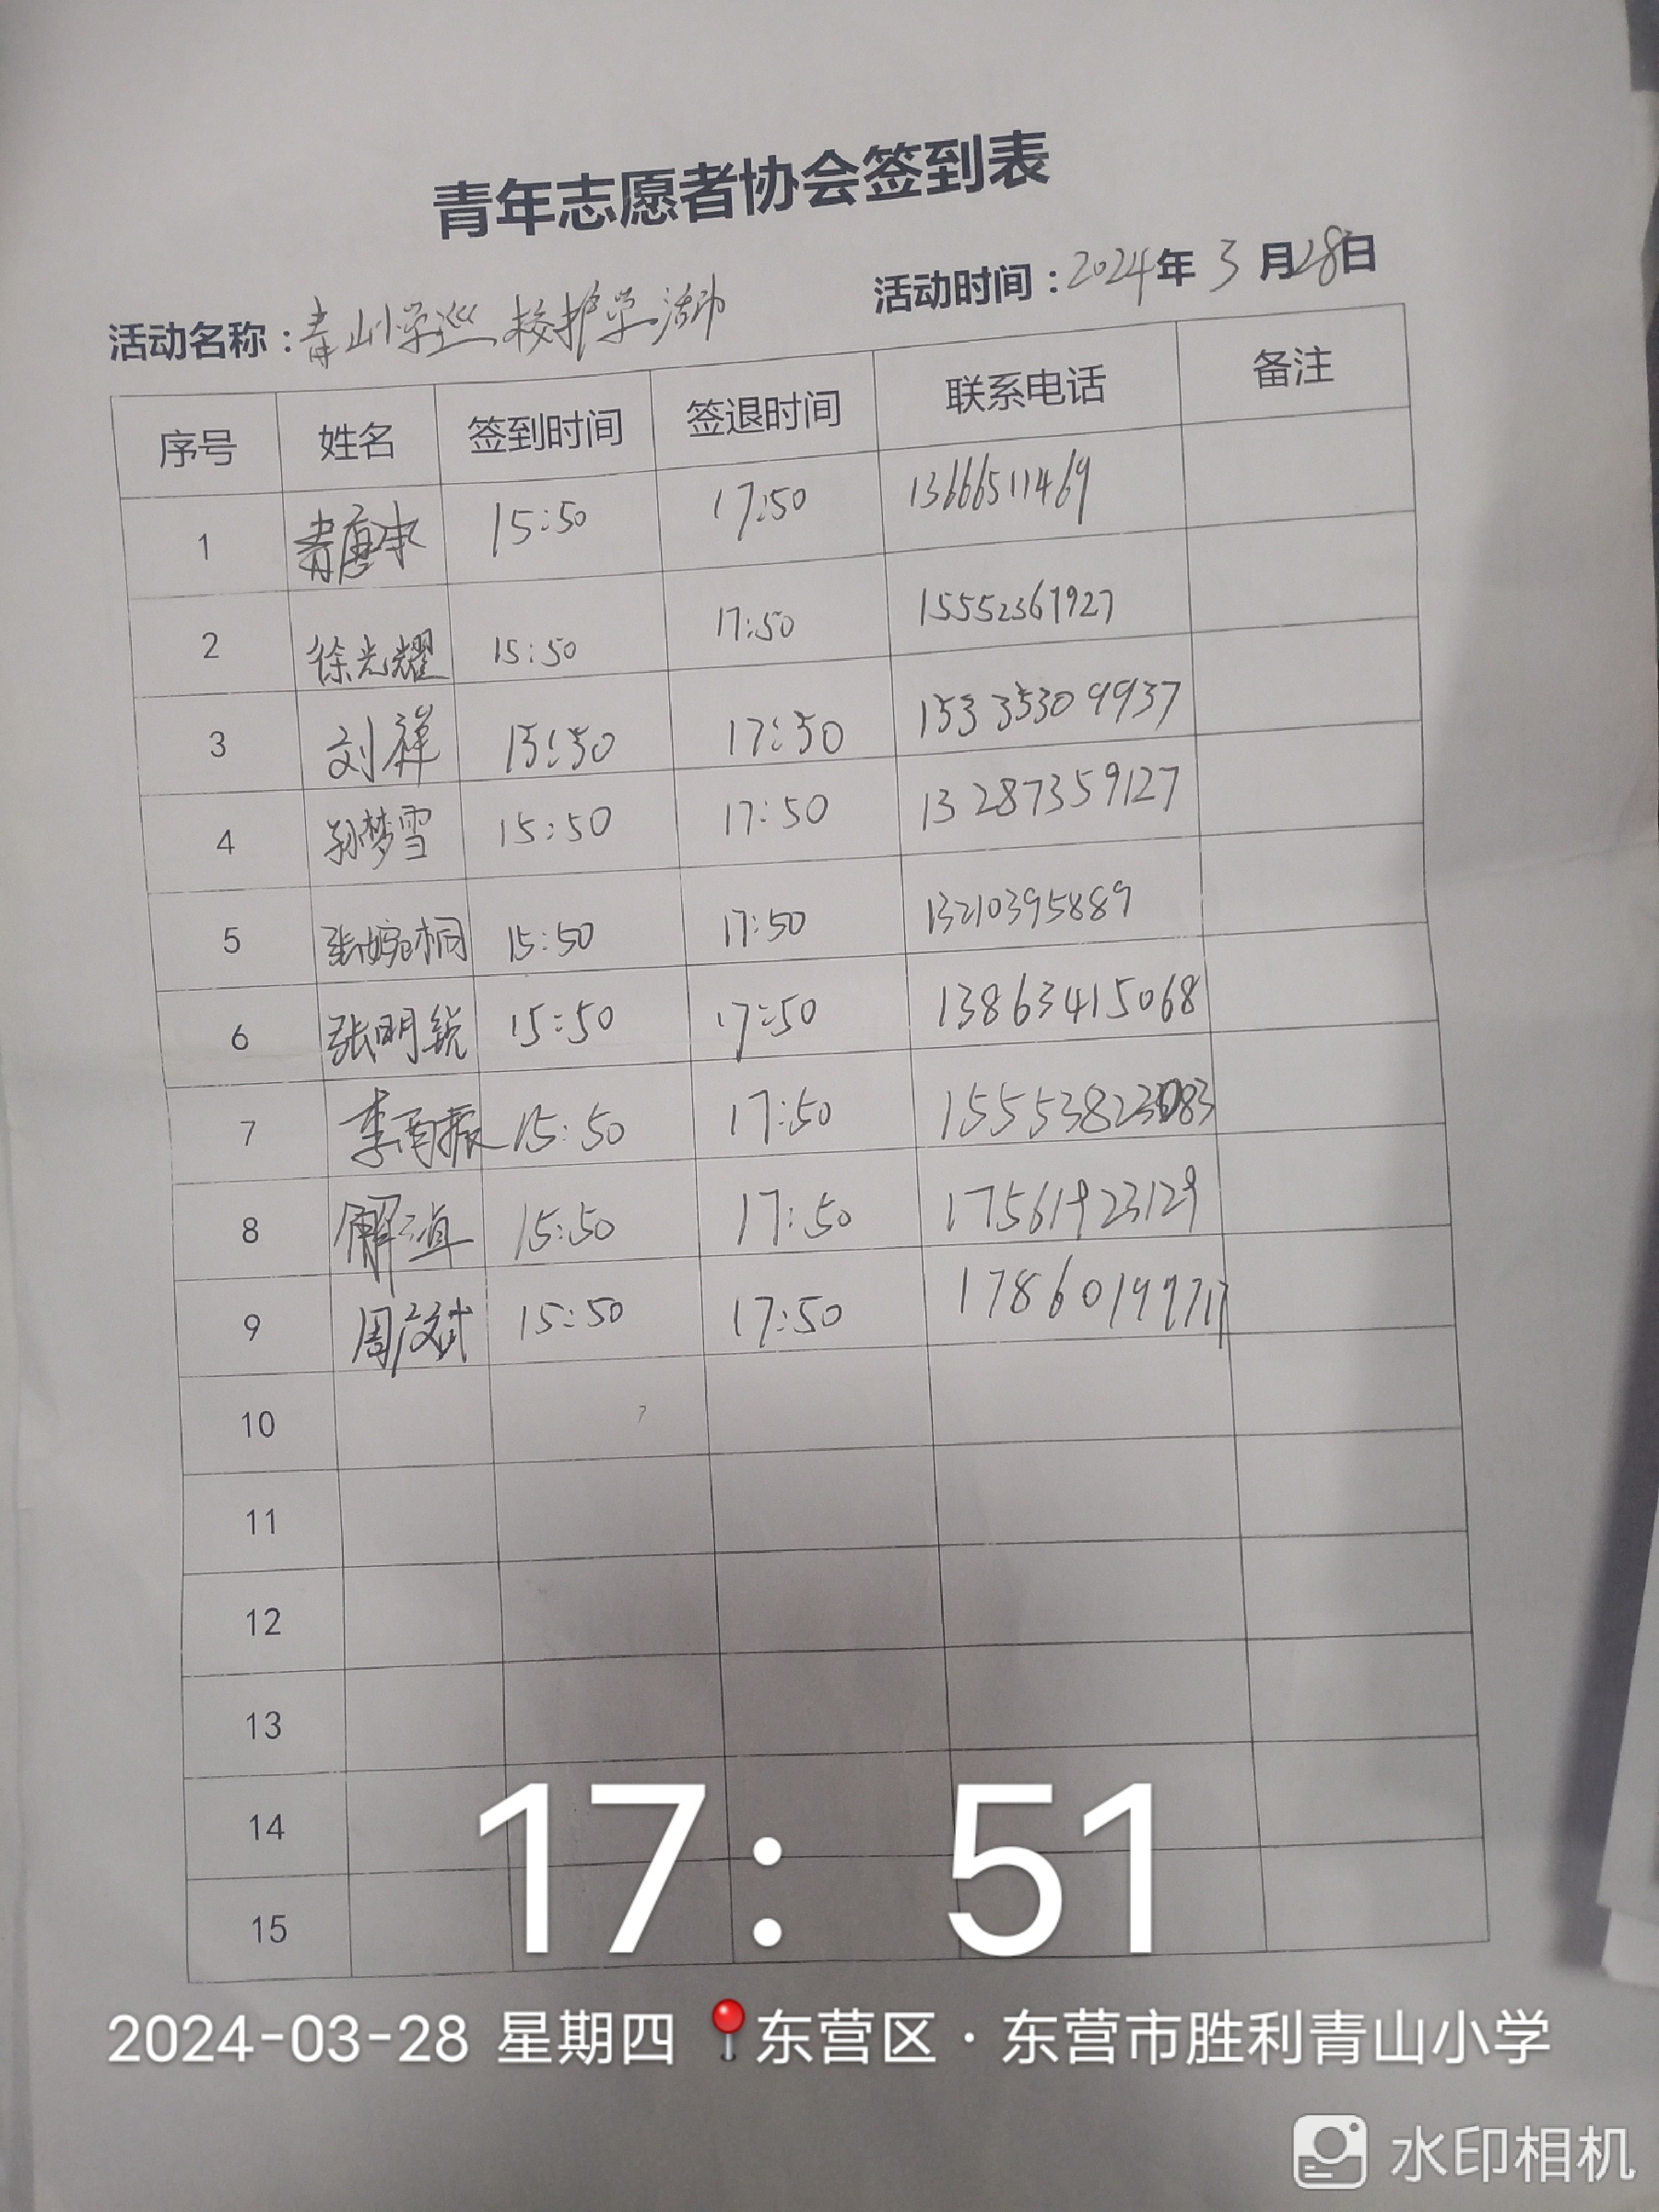 青年志愿者协会签到表
活动名称：青山小学巡校护学活动 活动时间：2024年3月28日
序号 姓名 签到时间 签退时间 联系电话 备注
1 15:50 17:50 13666511469
2 徐光耀 15:50 17:50 15552367927
3 刘祥 15:50 17:50 15335309937
4 孙梦雪 15:50 17:50 13287359127
5 张婉桐 15:50 17:50 13210395889
6 张明锐 15:50 17:50 13863415068
7 李雨振 15:50 17:50
8 解 15:50 17:50 17561923129
9 周 15:50 17:50
10
11
12
13
14
15
17：51
2024-03-28 星期四 东营区·东营市胜利青山小学
水印相机